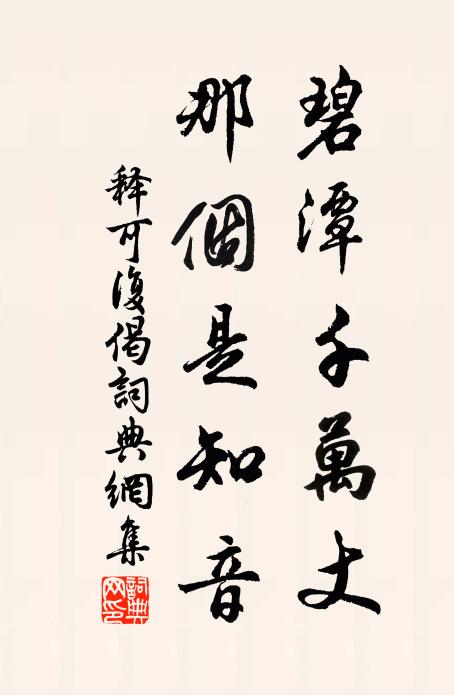 碧潭千萬丈
那個是知音
释可復偈詞典網集
詞典网印